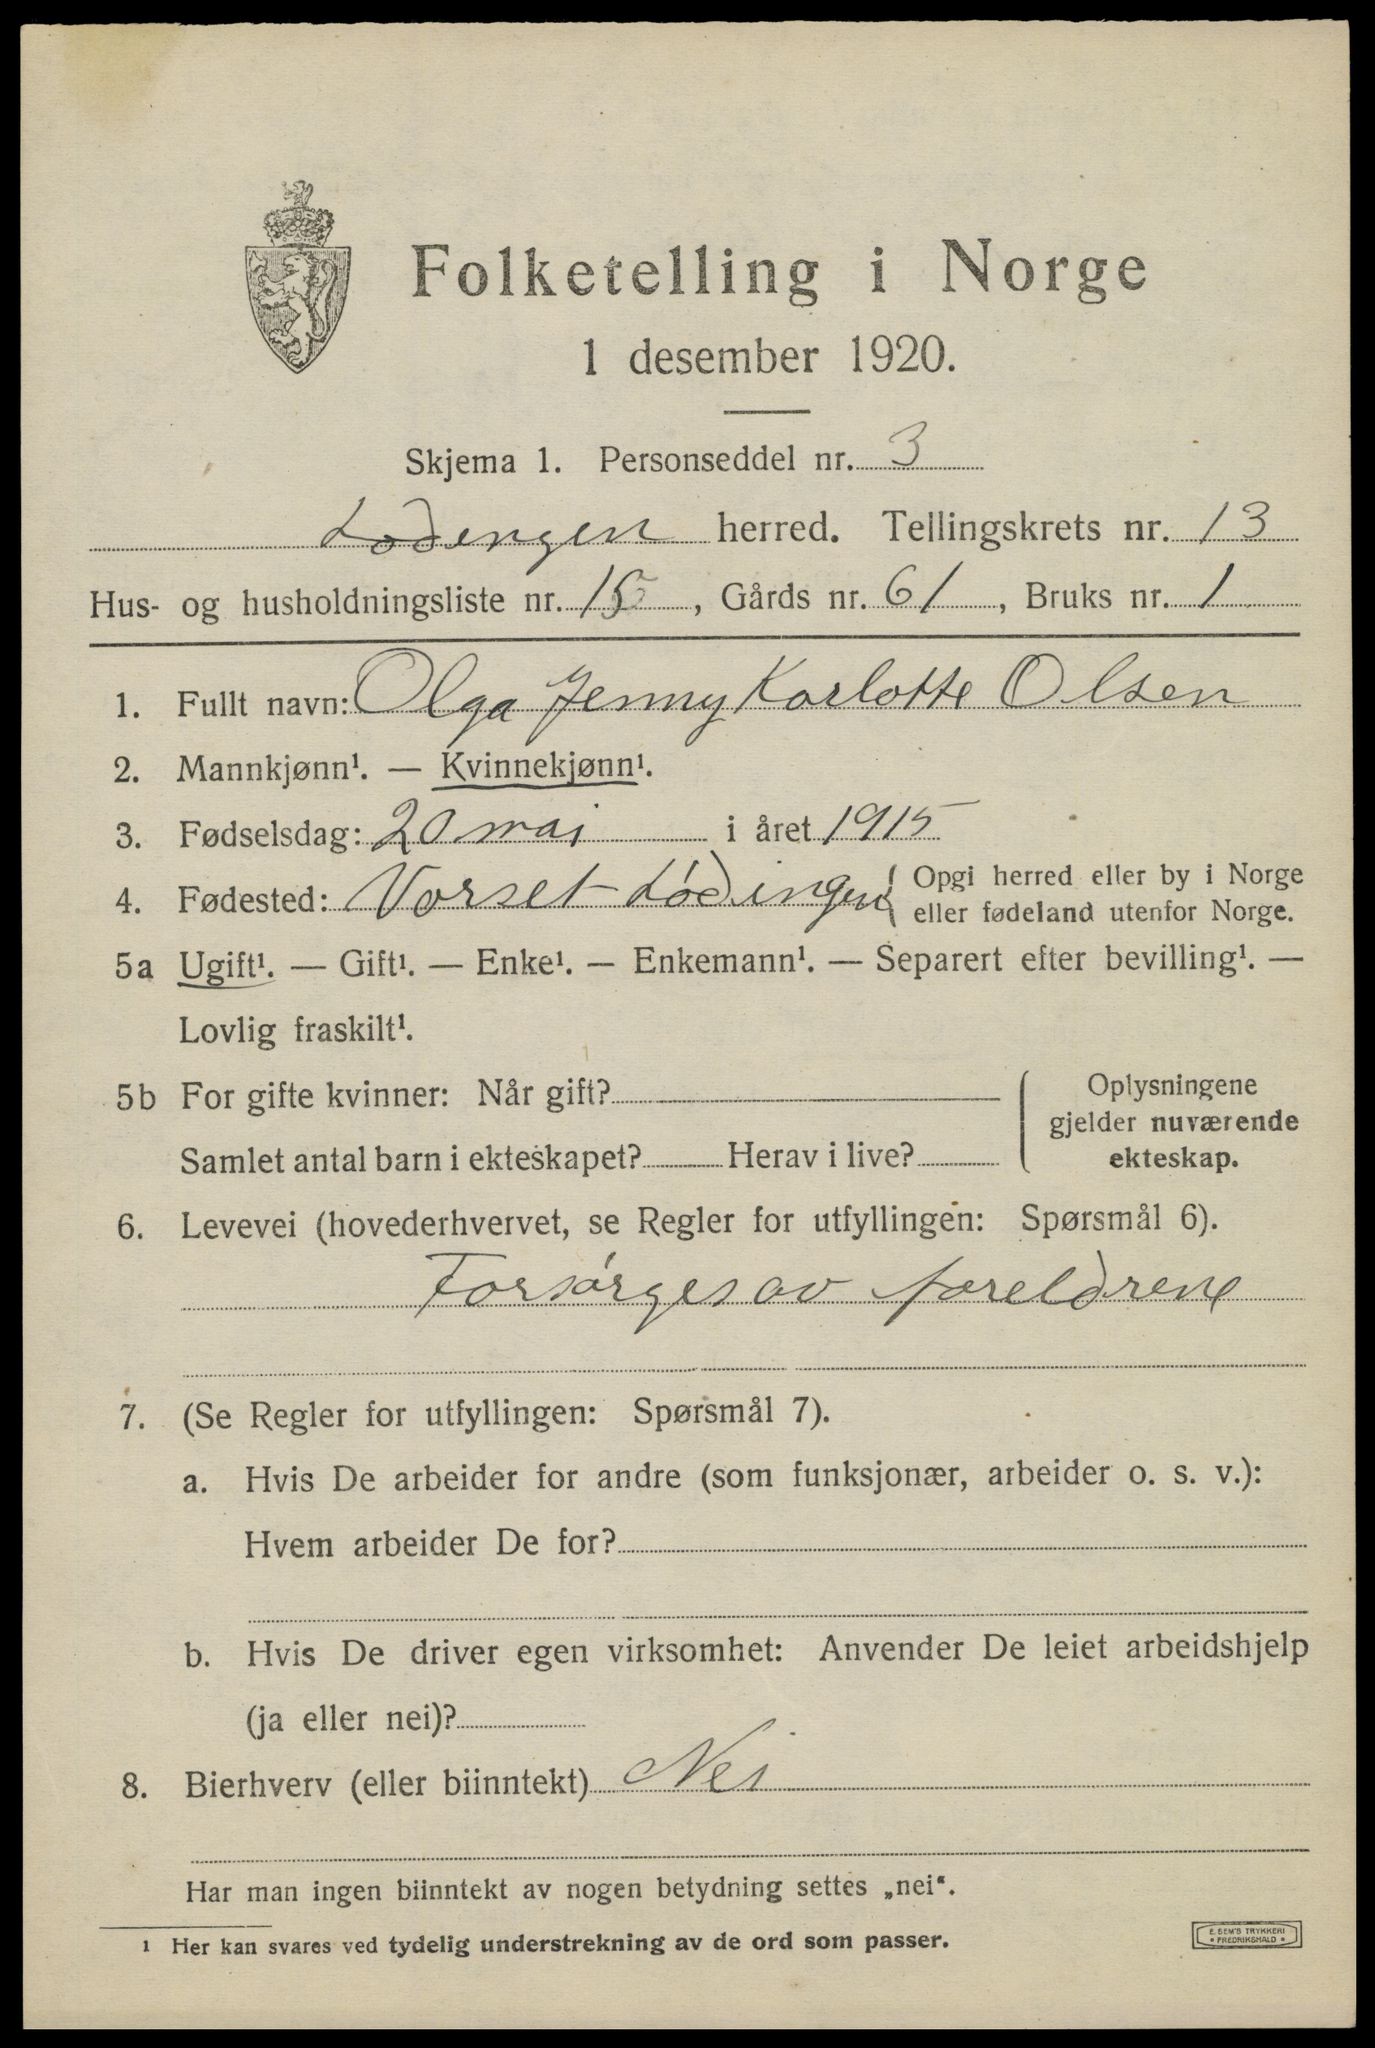 Folketelling i Norge
1 desember 1920.
Skjema 1. Personseddel nr. 3
Lødengen herred. Tellingskrets nr. 13
Hus- og husholdningsliste nr. 15, Gårds nr. 61, Bruks nr. 1
1. Fullt navn: Olga Jenny Karlotte Olsen
2. Mannkjønn¹. — Kvinnekjønn¹.
3. Fødselsdag: 20 mai i året 1915
4. Fødested: Vorset Lødingen { Opgi herred eller by i Norge
eller fødeland utenfor Norge.
5a Ugift¹. — Gift¹. — Enke¹. — Enkemann¹. — Separert efter bevilling¹. —
Lovlig fraskilt¹.
5b For gifte kvinner: Når gift?
Samlet antal barn i ekteskapet? Herav i live?
Oplysningene
gjelder nuværende
ekteskap.
6. Levevei (hovederhvervet, se Regler for utfyllingen: Spørsmål 6).
Forsørges av foreldrene
7. (Se Regler for utfyllingen: Spørsmål 7).
a. Hvis De arbeider for andre (som funksjonær, arbeider o. s. v.):
Hvem arbeider De for?
b. Hvis De driver egen virksomhet: Anvender De leiet arbeidshjelp
(ja eller nei)?
8. Bierhverv (eller biinntekt) Nei
Har man ingen biinntekt av nogen betydning settes „nei“.
¹ Her kan svares ved tydelig understrekning av de ord som passer.
E. SEM'S TRYKKERI
• FREDRIKSHALD •